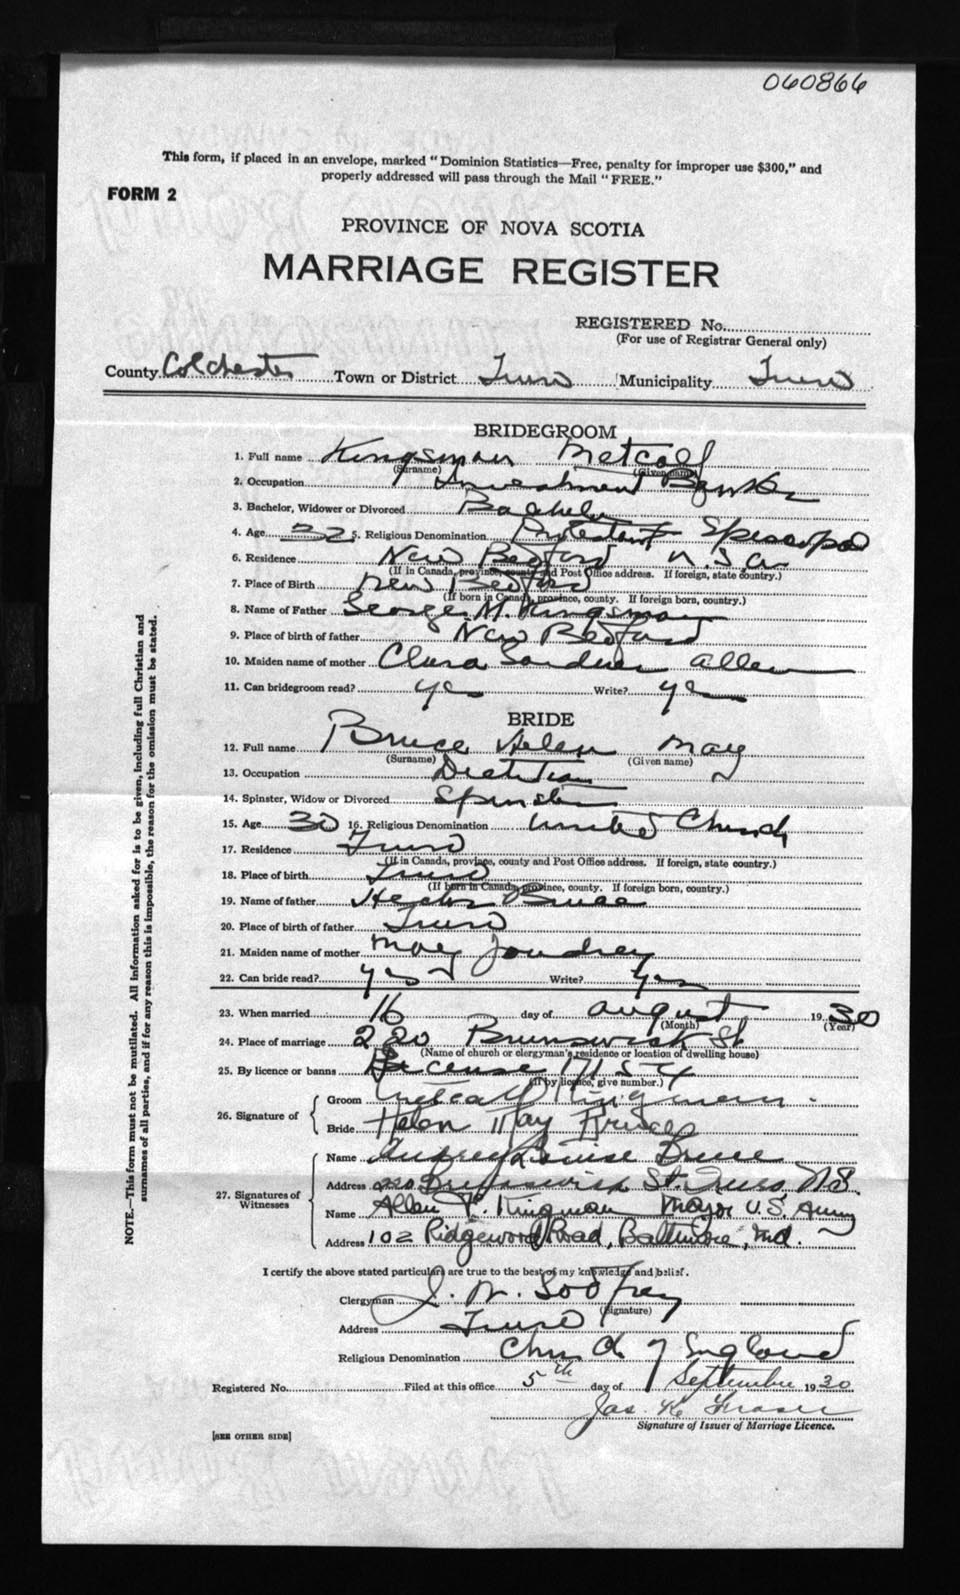 060866
This form, if placed in an envelope, marked "Dominion Statistics—Free, penalty for improper use $300," and
properly addressed will pass through the Mail "FREE."
FORM 2
PROVINCE OF NOVA SCOTIA
MARRIAGE REGISTER
REGISTERED No.
(For use of Registrar General only)
County Colchester Town or District Truro Municipality Truro
BRIDEGROOM
1. Full name Kingsman Metcalf
(Surname) (Given name)
2. Occupation Investment Banker
3. Bachelor, Widower or Divorced Bachelor
4. Age 32 5. Religious Denomination Protestant Episcopal
6. Residence New Bedford U.S.A.
(If in Canada, province, county and Post Office address. If foreign, state country.)
7. Place of Birth New Bedford
(If born in Canada, province, county. If foreign born, country.)
8. Name of Father George M. Kingsman
9. Place of birth of father New Bedford
10. Maiden name of mother Clara Allen
11. Can bridegroom read? yes Write? yes
BRIDE
12. Full name Bruce Helen May
(Surname) (Given name)
13. Occupation Dietitian
14. Spinster, Widow or Divorced Spinster
15. Age 30 16. Religious Denomination United Church
17. Residence Truro
(If in Canada, province, county and Post Office address. If foreign, state country.)
18. Place of birth Truro
(If born in Canada, province, county. If foreign born, country.)
19. Name of father Hector Bruce
20. Place of birth of father Truro
21. Maiden name of mother May Joudrey
22. Can bride read? yes Write? yes
23. When married 16 day of August 1930
(Month) (Year)
24. Place of marriage 220 Brunswick St
(Name of church or clergyman's residence or location of dwelling house)
25. By licence or banns License 17154
(If by licence, give number.)
26. Signature of
Groom Metcalf Kingman
Bride Helen May Bruce
27. Signatures of Witnesses
Name Louise Bruce
Address 220 Brunswick St. Truro N.S.
Name Allen F. Kingman Major U.S. Army
Address 102 Ridgewood Road, Baltimore, Md.
I certify the above stated particulars are true to the best of my knowledge and belief.
Clergyman J. W. Godfrey
(Signature)
Address Truro
Religious Denomination Church of England
Registered No. Filed at this office 5th day of September 1930
Jas. K Fraser
Signature of Issuer of Marriage Licence.
[SEE OTHER SIDE]
NOTE.—This form must not be mutilated. All information asked for is to be given, including full Christian and
surnames of all parties, and if for any reason this is impossible, the reason for the omission must be stated.